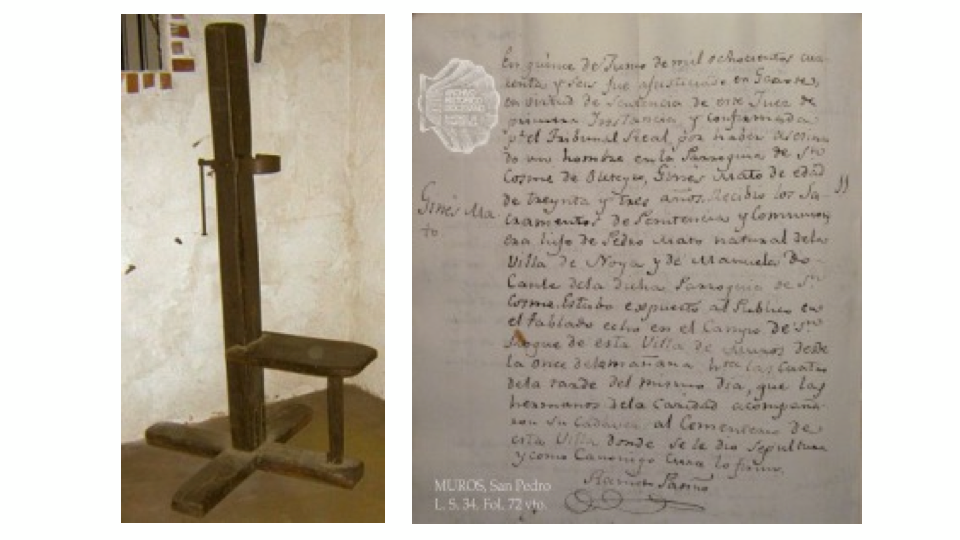 En quince de Junio de mil ochocientos cua-
renta y seis fue ajusticiado en Garrote,
en virtud de Sentencia de este Juez de
primera Instancia, y confirmada
pr el Tribunal Sreal, por haber asesina-
do un hombre en la Parroquia de Sn
Cosme de Outeyro, Ginés Mato de edad
de treynta y tres años. Recibio los Sa-
cramentos de Penitencia y Comunion,
era hijo de Pedro Mato natural dela
Villa de Noya y de Manuela
dela dicha Parroquia de Sn
Cosme. Estubo expuesto al Publico en
el tablado echo en el Campo de Sn
Roque de esta Villa de Muros desde
la once dela mañana hta las Cuatro
dela tarde del mismo dia, que las
hermanos dela Caridad acompaña-
ron su Cadaver al Cementerio de
esta Villa donde se le dio sepultura
y como Canonigo Cura lo firmo.
Ginés Ma-
to
ARCHIVO
HISTÓRICO
DIOCESANO
MUROS, San Pedro
L. S. 34. Fol. 72 vto.